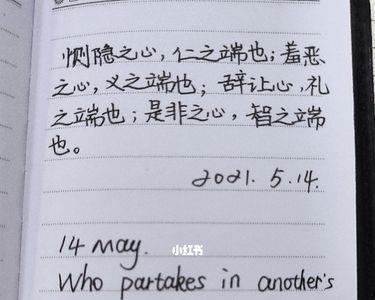 恻隐之心，仁之端也；羞恶
之心，义之端也；辞让心，礼
之端也；是非之心，智之端
也。
2021. 5.14.
14 May.
小红书
Who partakes in another's